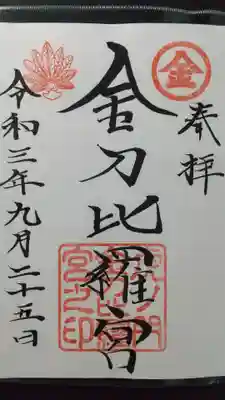 奉拝
金
金刀比羅宮
令和三年九月二十五日